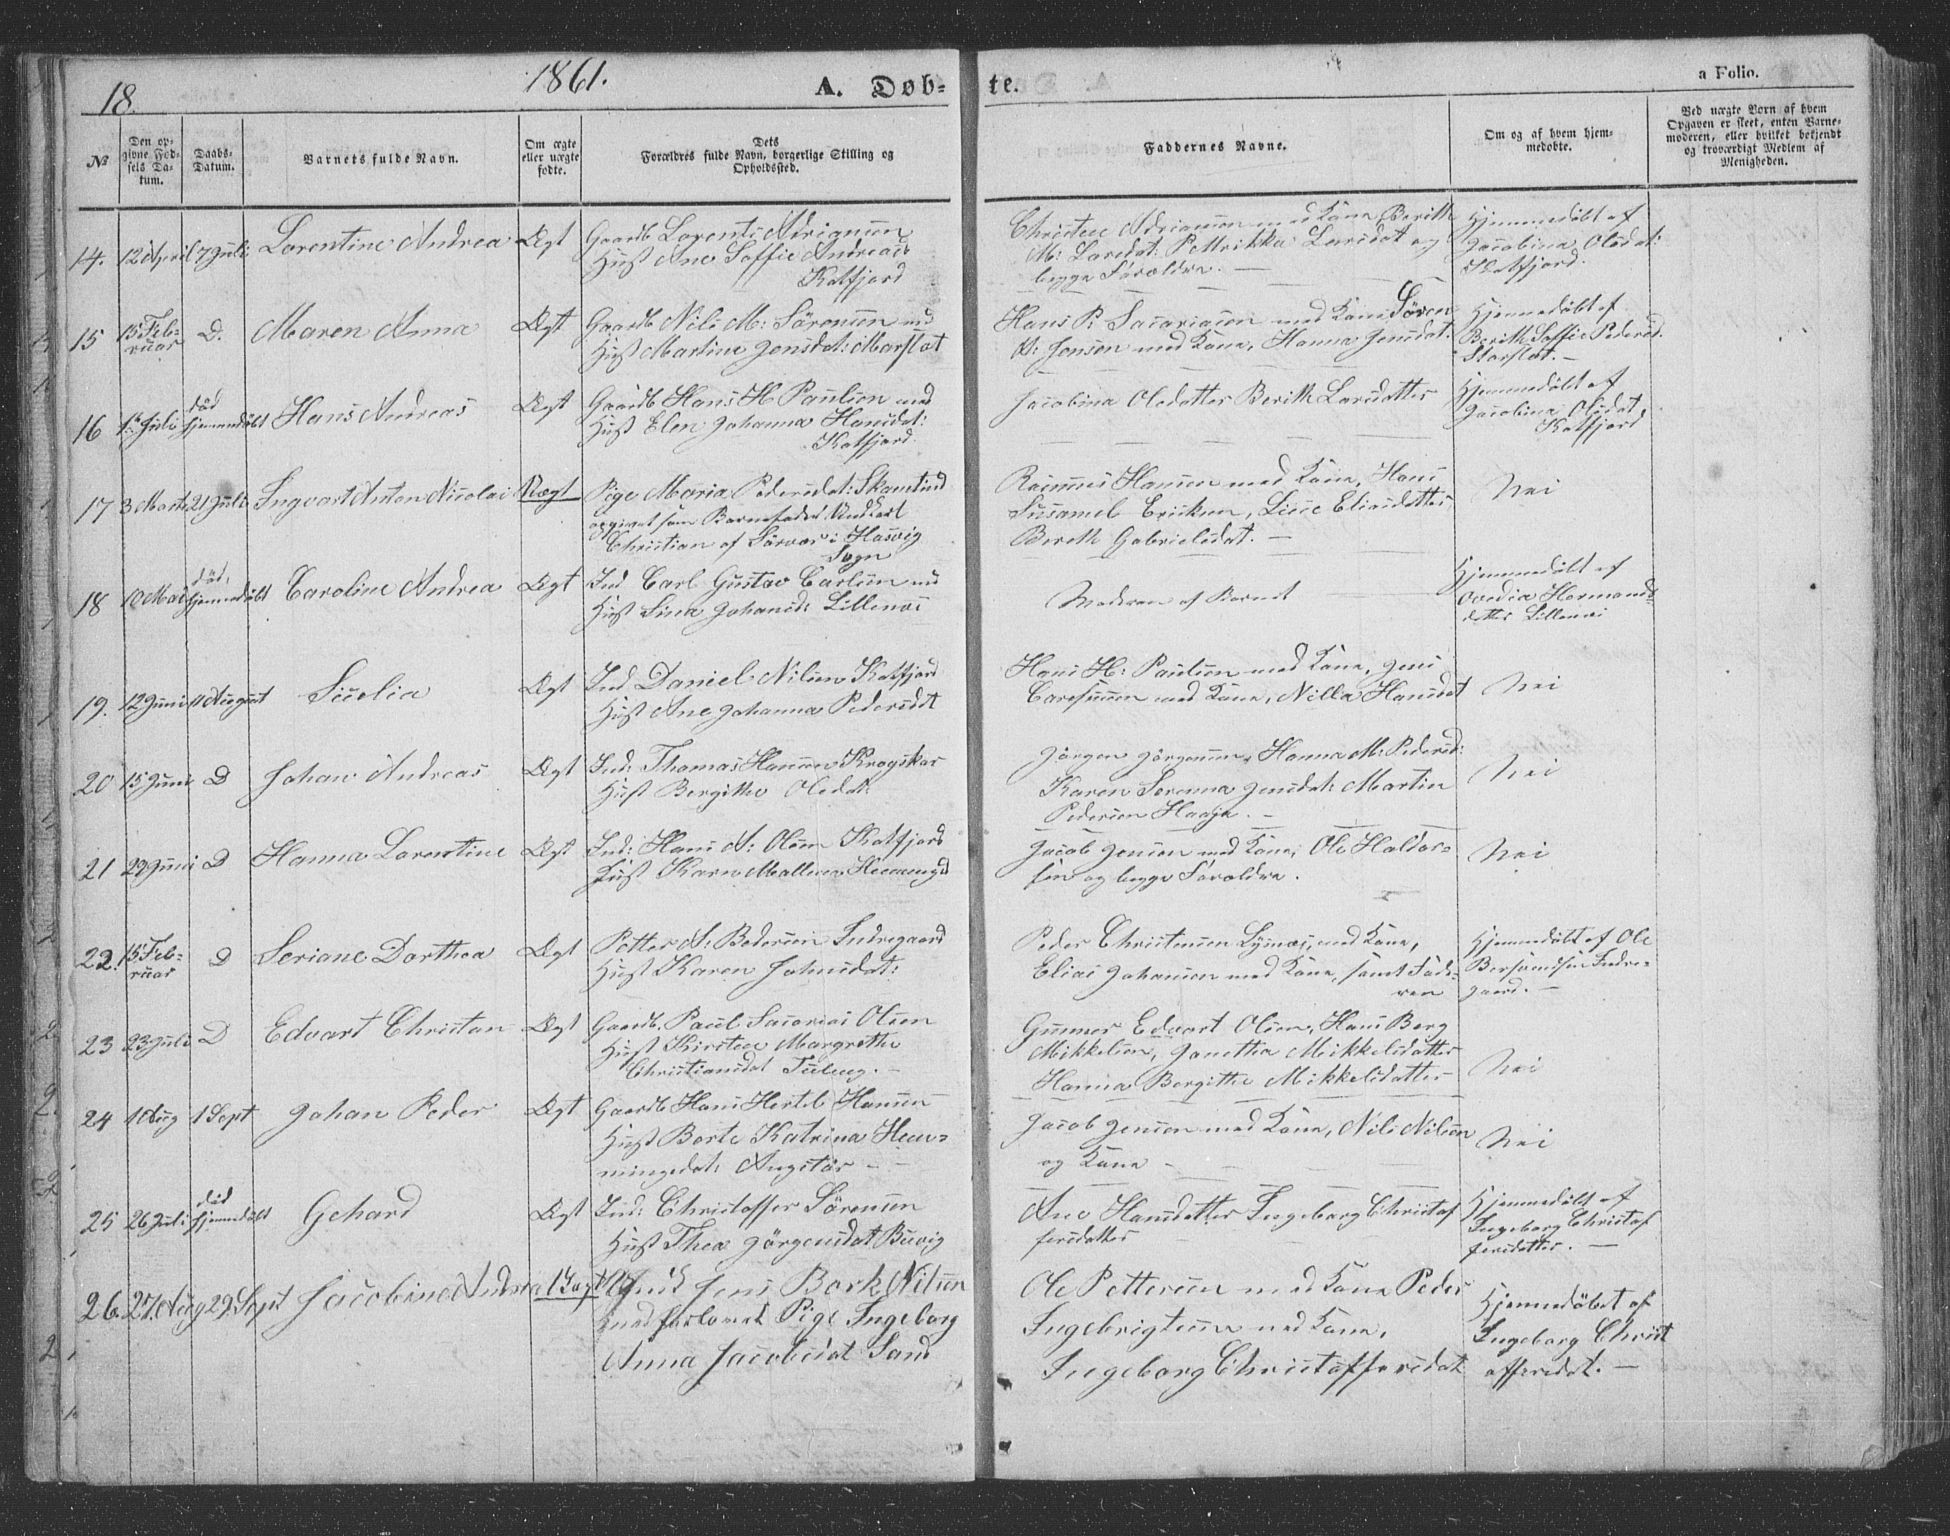 18.
1861.
A. Døb-
te.
a Folio.
№
Den op-
givne Fød-
sels Da-
tum.
Daabs-
Datum.
Barnets fulde Navn.
Om ægte
eller uægte
fødte.
Dets
Forældres fulde Navn, borgerlige Stilling og
Opholdssted.
Faddernes Navne.
Om og af hvem hjem-
medøbte.
Ved uægte Born af hvem
Opgaven er skeet, enten Barne-
moderen, eller hvilket bekjendt
og troværdigt Medlem af
Menigheden.
14. 12 April 7 Juli Lorentine Andrea Ægt
Gaardb Lorents Adriansen
Hust Ane Soffie Andreasd
Kalfjord
Christen Adriansen med Kone, Berith
M: Larsdat: Pettrikka Larsdat og
begge Forældre. —
Hjemmedøbt af
Jacobina Olsdat:
Kalfjord.
15 15 Feb-
ruar D. Maren Anna Ægt
Gaardb Nils M: Sörensen md
Hust Martine Jensdat:
Hans P: Sacariasen med Kone Sören
P: Jensen med Kone, Hanna Jensdat:
Hjemmedøbt af
Berith Soffie Pedersd.
16 1ste Juli død
hjemmedöbt Hans Andreas Ægt
Gaardb Hans H Paulsen med
Hust Elen Johanna Hansdat:
Kalfjord
Jacobina Olsdatter Berith Larsdatter
Hjemmedøbt af
Jacobina Olsdat
Kalfjord
17 3 Marts 21 Juli Ingvart Anton Nicolai Uægt
Pige Maria Pedersdat:
opgivet som Barnefader Ungkarl
Christian af Sörvær i Hasvig
Sogn
Rasmus Hansen med Kone, Hans
Eriksen, Lisse Eliasdatter
Bereth Gabrielsdat. —
Nei
18 10 Mai död,
hjemmedöbt Caroline Andrea Ægt
Ind Carl Gustav Carlsen md
Hust Sina Johansd:
Moderen af Barnet
Hjemmedøbt af
Ovedia Hermands
datter
19. 12 Juni 11 August Ægt
Ind Daniel Nilsen Kalfjord
Hust Ane Johanna Pedersdat
Hans H: Paulsen med Kone, Jens
med Kone, Nilla Hansdat
Nei
20 15 Juni D Johan Andreas Ægt
Ind: Thomas Hansen
Hust Bergithe Olsdat:
Jörgen Jörgensen, Hanna M: Pedersd:
Karen Jensdat: Martin
Pedersen
Nei
21 29 Juni D Hanna Lorentine Ægt
Ind: Hans A: Olsen Kalfjord
Hust
Jacob Jensen med Kone, Ole Haldor-
sen og begge Forældre.
Nei
22. 15 Feb-
ruar D Seriane Dorthea Ægt
Petter A: Pedersen Indregaard
Hust Karen Johnsdat:
Peder Christensen med Kone,
Elias Johansen med Kone, samt Fade-
ren
Hjemmedøbt af Ole
Indre-
gaard. —
23 23 Juli D Edvart Christan Ægt
Gaardb. Paul Sacarias Olsen
Hust Kirsten Margrethe
Christiansdat
Edvart Olsen, Hans Berg
Mikkelsen, Janetha Mikkelsdatter
Hanna Bergithe Mikkelsdatter
Nei
24 1 Aug 1 Sept Johan Peder Ægt
Gaardb Hans Hertel Hansen
Hust Katrina Hem-
mingsdat:
Jacob Jensen med Kone, Nils Nilsen
og Kone —
Nei
25 26 Juli död
hjemmedöbt Gehard Ægt
Ind: Christoffer Sörensen
Hust Thea Jörgensdat
Ane Hansdatter Ingeborg Christof
fersdatter
Hjemmedøbt af
Ingeborg Christof
fersdatter. —
26. 27. Aug 29. Sept Jacobine Andrea Uægt
Jens Bork Nilsen
Pige Ingeborg
Anna Jacobsdat Sand
Ole Pettersen med Kone Peder
Ingebrigtsen med Kone,
Ingeborg Christoffersdat
Hjemmedøbet af
Ingeborg Christ
offersdat. —